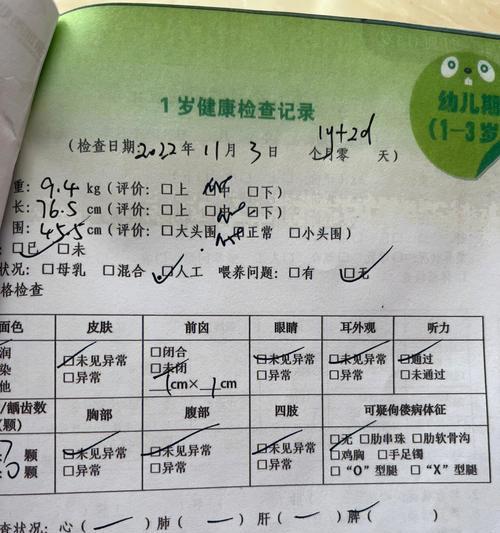 1岁健康检查记录
幼儿期
(1-3岁
(检查日期2022年11月3日 1y+2d 个月零 天)
重:9.4kg(评价:□上 □中 □下)
长:76.5cm(评价:□上 □中 □下)
围:45.5cm(评价:□大头围 □正常 □小头围)
:□已 □未
状况:□母乳 □混合 □人工 喂养问题:□有 □无
格检查
面色 皮肤 前囟 眼睛 耳外观 听力
润 □未见异常 □闭合 □未见异常 □未见异常 □通过
染 □异常 □未闭 □异常 □异常 □未通过
他 1cm×1cm
/龋齿数 胸部 腹部 四肢 可疑佝偻病体征
(颗)
7颗 □未见异常 □未见异常 □未见异常 □无 □肋串珠 □肋软骨沟
0颗 □异常 □异常 □异常 □鸡胸 □手足镯
□“O”型腿 □“X”型腿
查状况:心( )肺( )肝( )脾( )